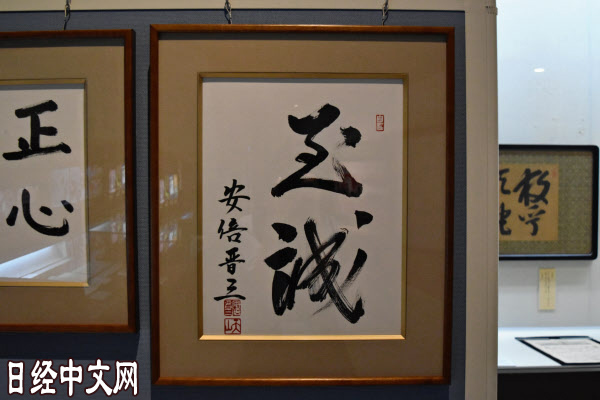 正心
至誠
安倍晋三
日经中文网